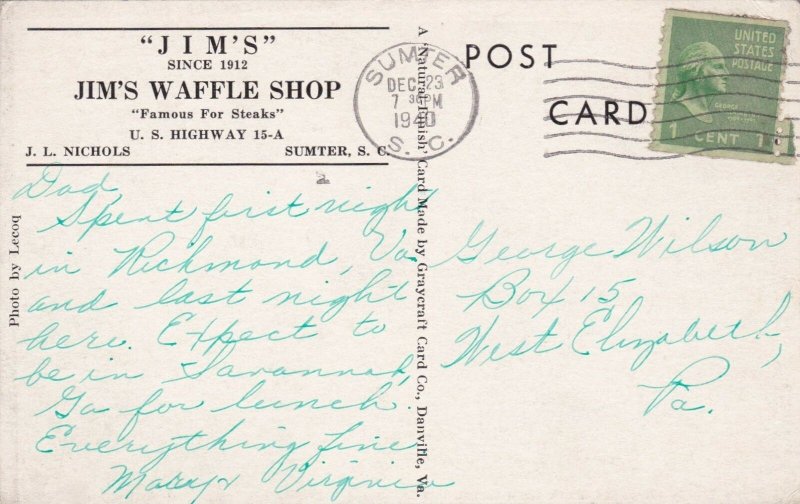 "JIM'S"
SINCE 1912
JIM'S WAFFLE SHOP
"Famous For Steaks"
U. S. HIGHWAY 15-A
J. L. NICHOLS SUMTER, S. C.
Dad,
Spent first night
in Richmond, Va
and last night
here. Expect to
be in Savannah,
Ga for lunch.
Everything fine
Mary & Virginia
Photo by Lecoq
A 'Natural-Finish' Card Made by Graycraft Card Co., Danville, Va.
SUMTER
DEC 23
7 30PM
1940
S. C.
POST
CARD
UNITED
STATES
POSTAGE
GEORGE
1 CENT 1
George Wilson
Box 15
West Elizabeth,
Pa.